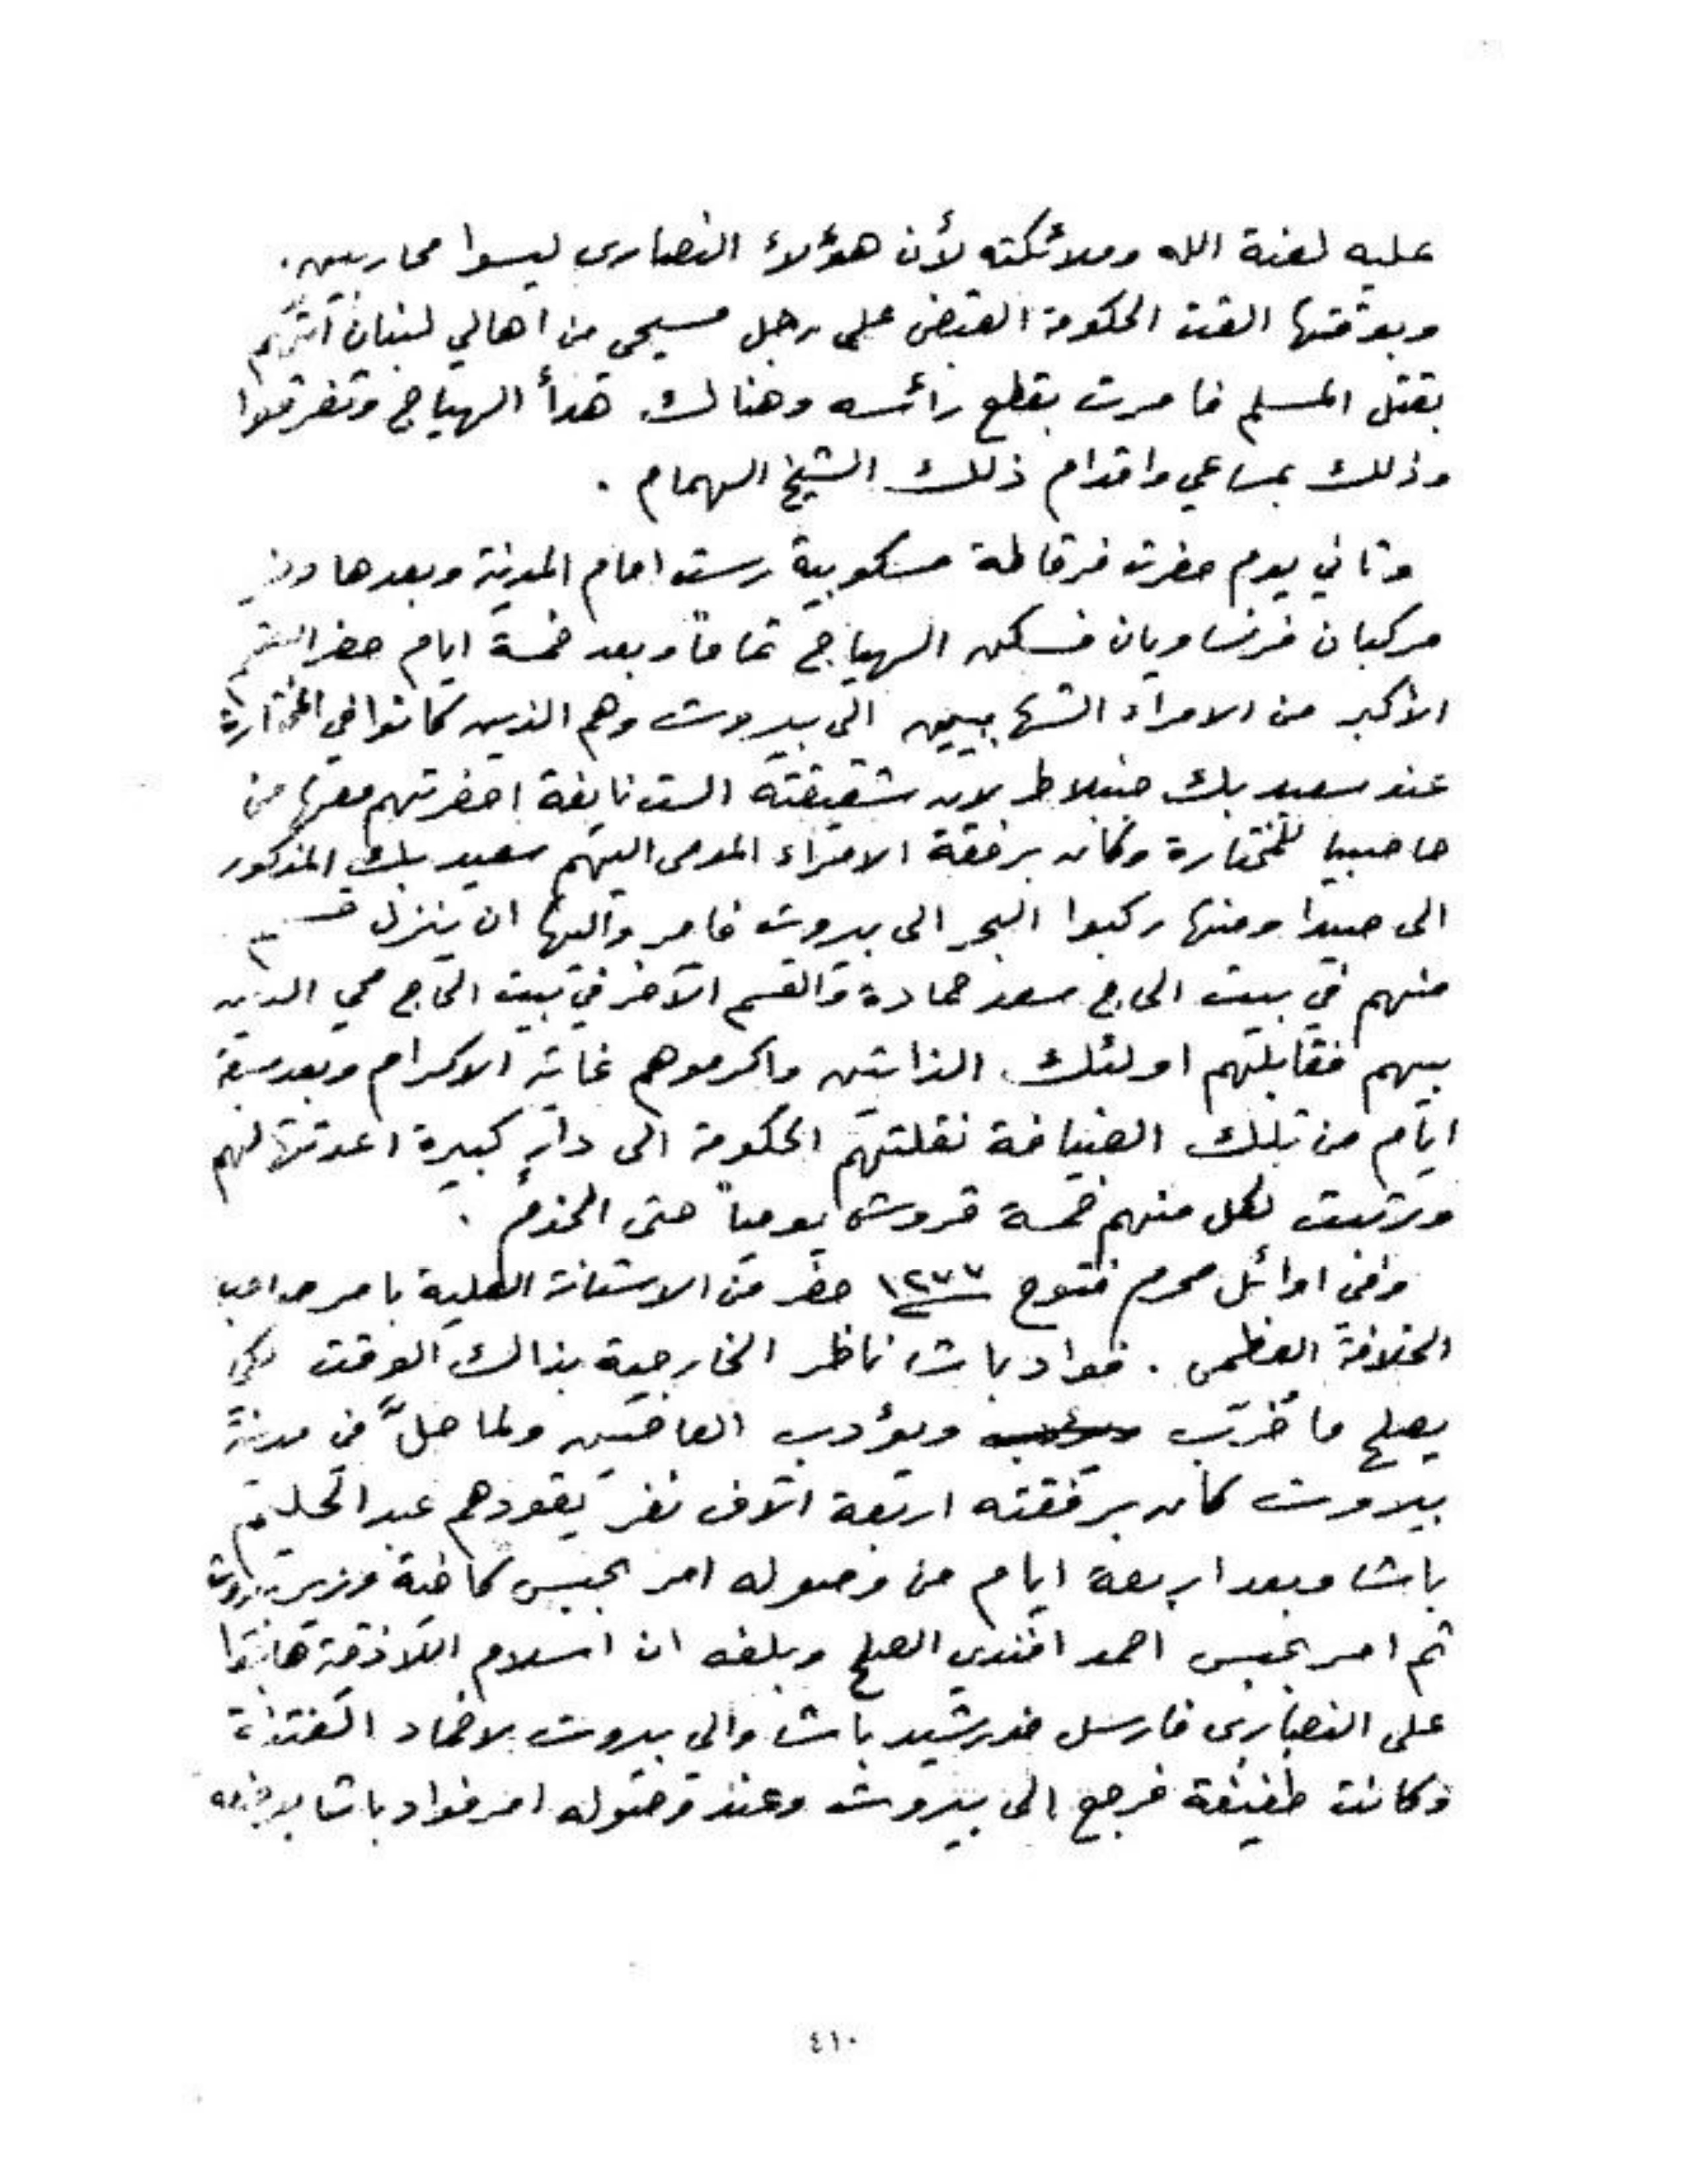 عليه لعنة الله وملائكته لأن هؤلاء النصارى ليسوا محاربين.
وبوقتها القت الحكومة القبض على رجل مسيحي من اهالي لبنان اتهم
بقتل المسلم فامرت بقطع رأسه وهنالك هدأ الهياج وتفرقوا
وذلك بمساعي واقدام ذلك الشيخ الهمام .
وثاني يوم حضرت فرقاطة مسكوبية رست امام المدينة وبعدها
مركبان فرنساويان فسكن الهياج تماماً وبعد خمسة ايام حضر القسم
الأكبر من الامراء الشهابيين الى بيروت وهم الذين كانوا في المختارة
عند سعيد بك جنبلاط لان شقيقته الست نايفة احضرتهم معها من
حاصبيا للمختارة وكان برفقة الامراء المومى اليهم سعيد بك المذكور
الى صيدا ومنها ركبوا البحر الى بيروت فامر واليها ان ينزل قسم
منهم في بيت الحاج سعد حمادة والقسم الآخر في بيت الحاج محي الدين
بيهم فقابلتهم اولئك الذاتين واكرموهم غاية الاكرام وبعد
ايام من تلك الضيافة نقلتهم الحكومة الى دارٍ كبيرة اعدتها لهم
ورتبت لكل منهم خمسة قروش يومياً حتى الخدم .
وفي اوائل محرم فتوح ١٢٧٧ حضر من الاستانة العلية بامر صاحب
الخلافة العظمى . فواد باشا ناظر الخارجية بذالك الوقت لكي
يصلح ما خُرّب ويؤدب العاصين ولما حلَّ في مدينة
بيروت كان برفقته اربعة الآف نفر يقودهم عبد الحليم
باشا وبعد اربعة ايام من وصوله امر بحبس كاخية وزير بيروت
ثم امر بحبس احمد افندي الصلح وبلغه ان اسلام اللاذقية هاجوا
على النصارى فارسل خورشيد باشا والي بيروت لاخماد الفتنة
وكانت طفيفة فرجع الى بيروت وعند وصوله امر فواد باشا
٤١٠